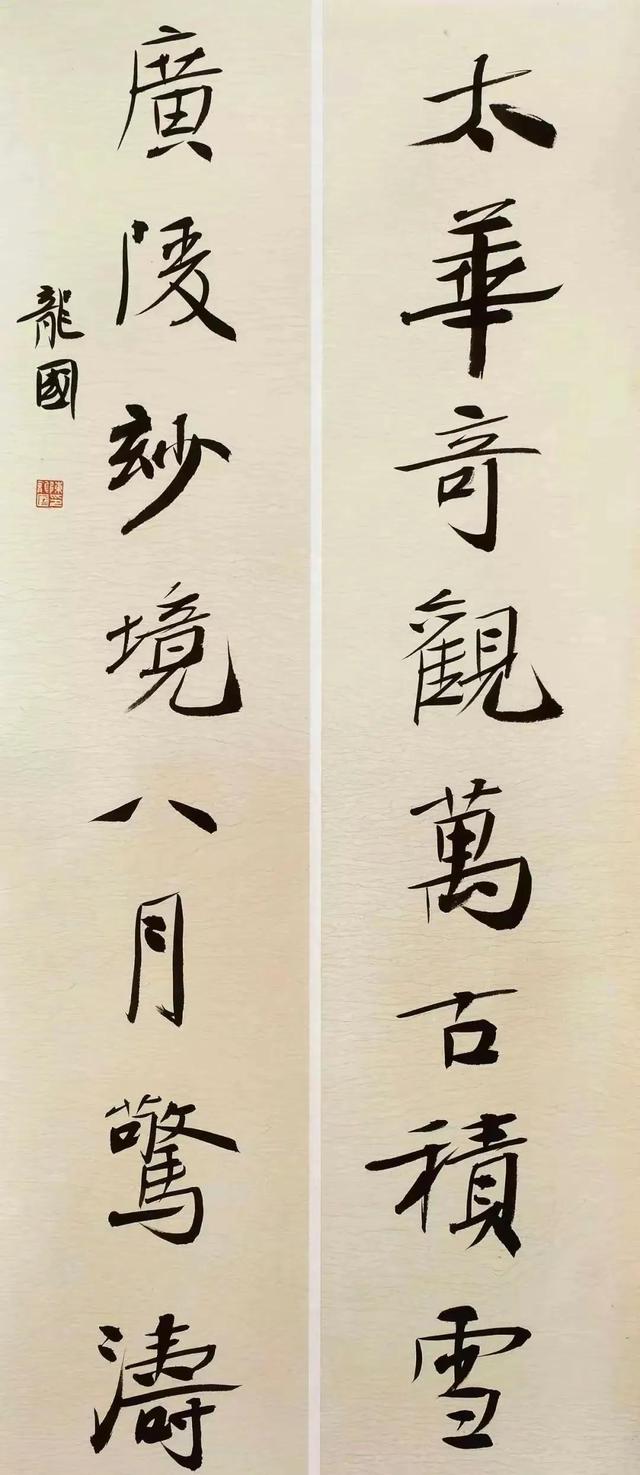 太華奇觀萬古積雪
廣陵玅境八月驚濤
龍國